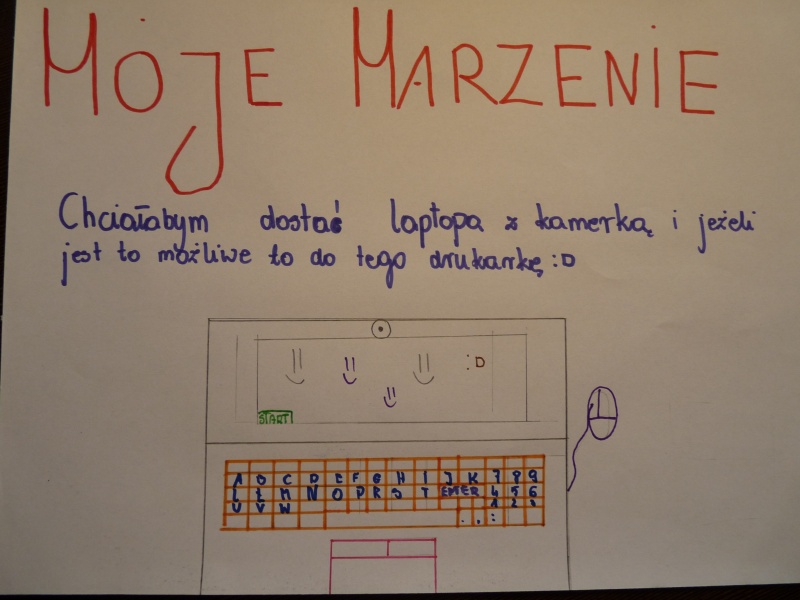 MOJE MARZENIE
Chciałabym dostać laptopa z kamerką i jeżeli
jest to możliwe to do tego drukarkę :D
:D
START
A B C D E F G H I J K 7 8 9
L Ł M N O P R S T ENTER 4 5 6
U V W 1 2 3
. , :